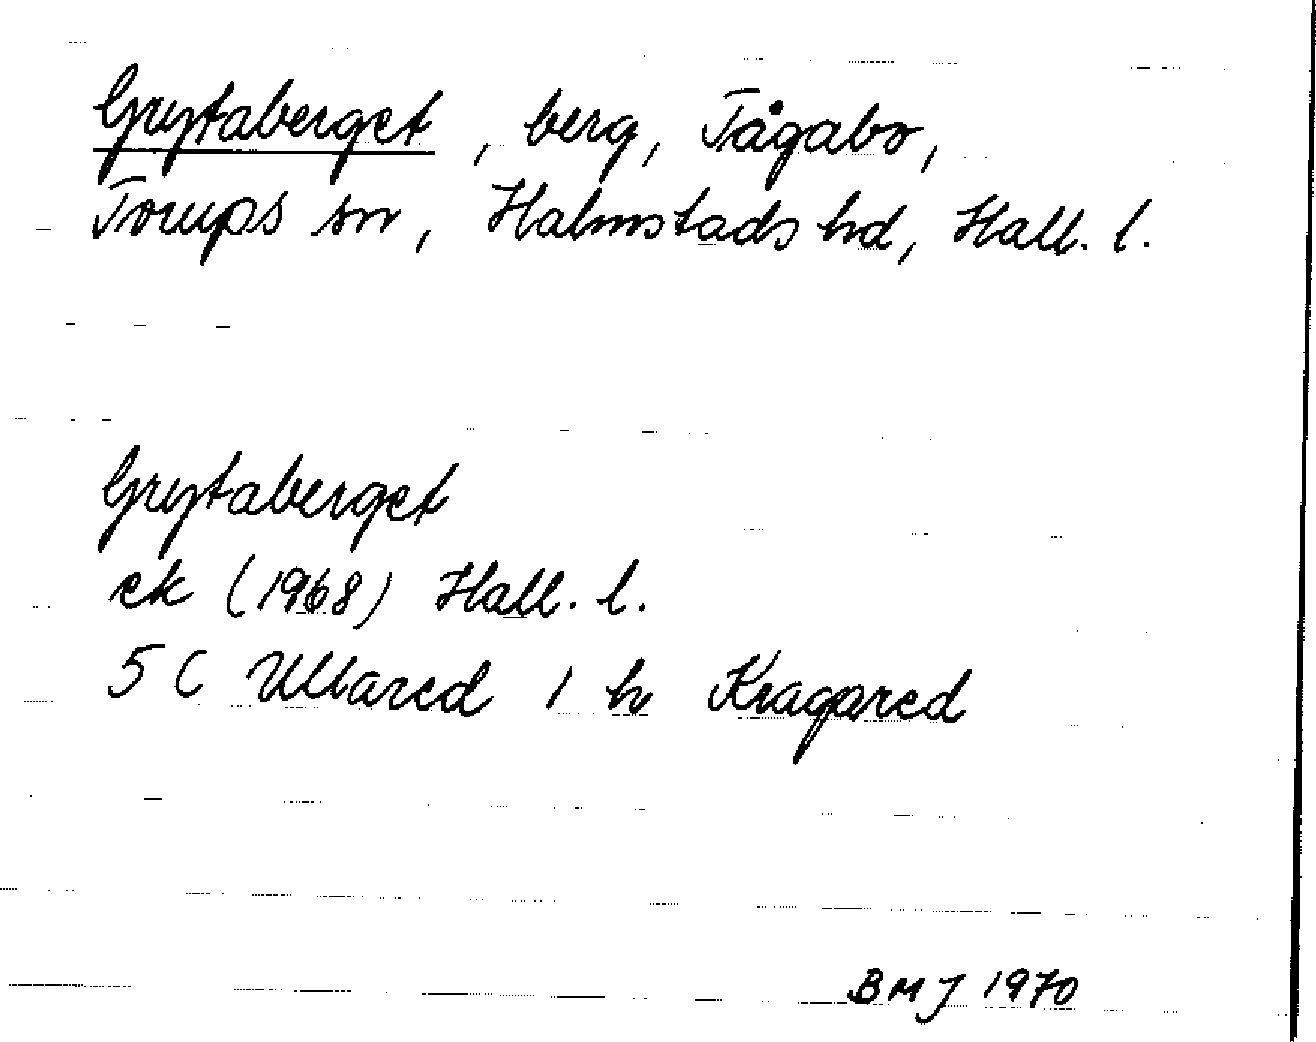 Grytaberget, berg, Tågabo,
Torups sn, Halmstads hd, Hall. l.
Grytaberget
ek (1968) Hall. l.
5 C Ullared 1 h Kragared
BMJ 1970